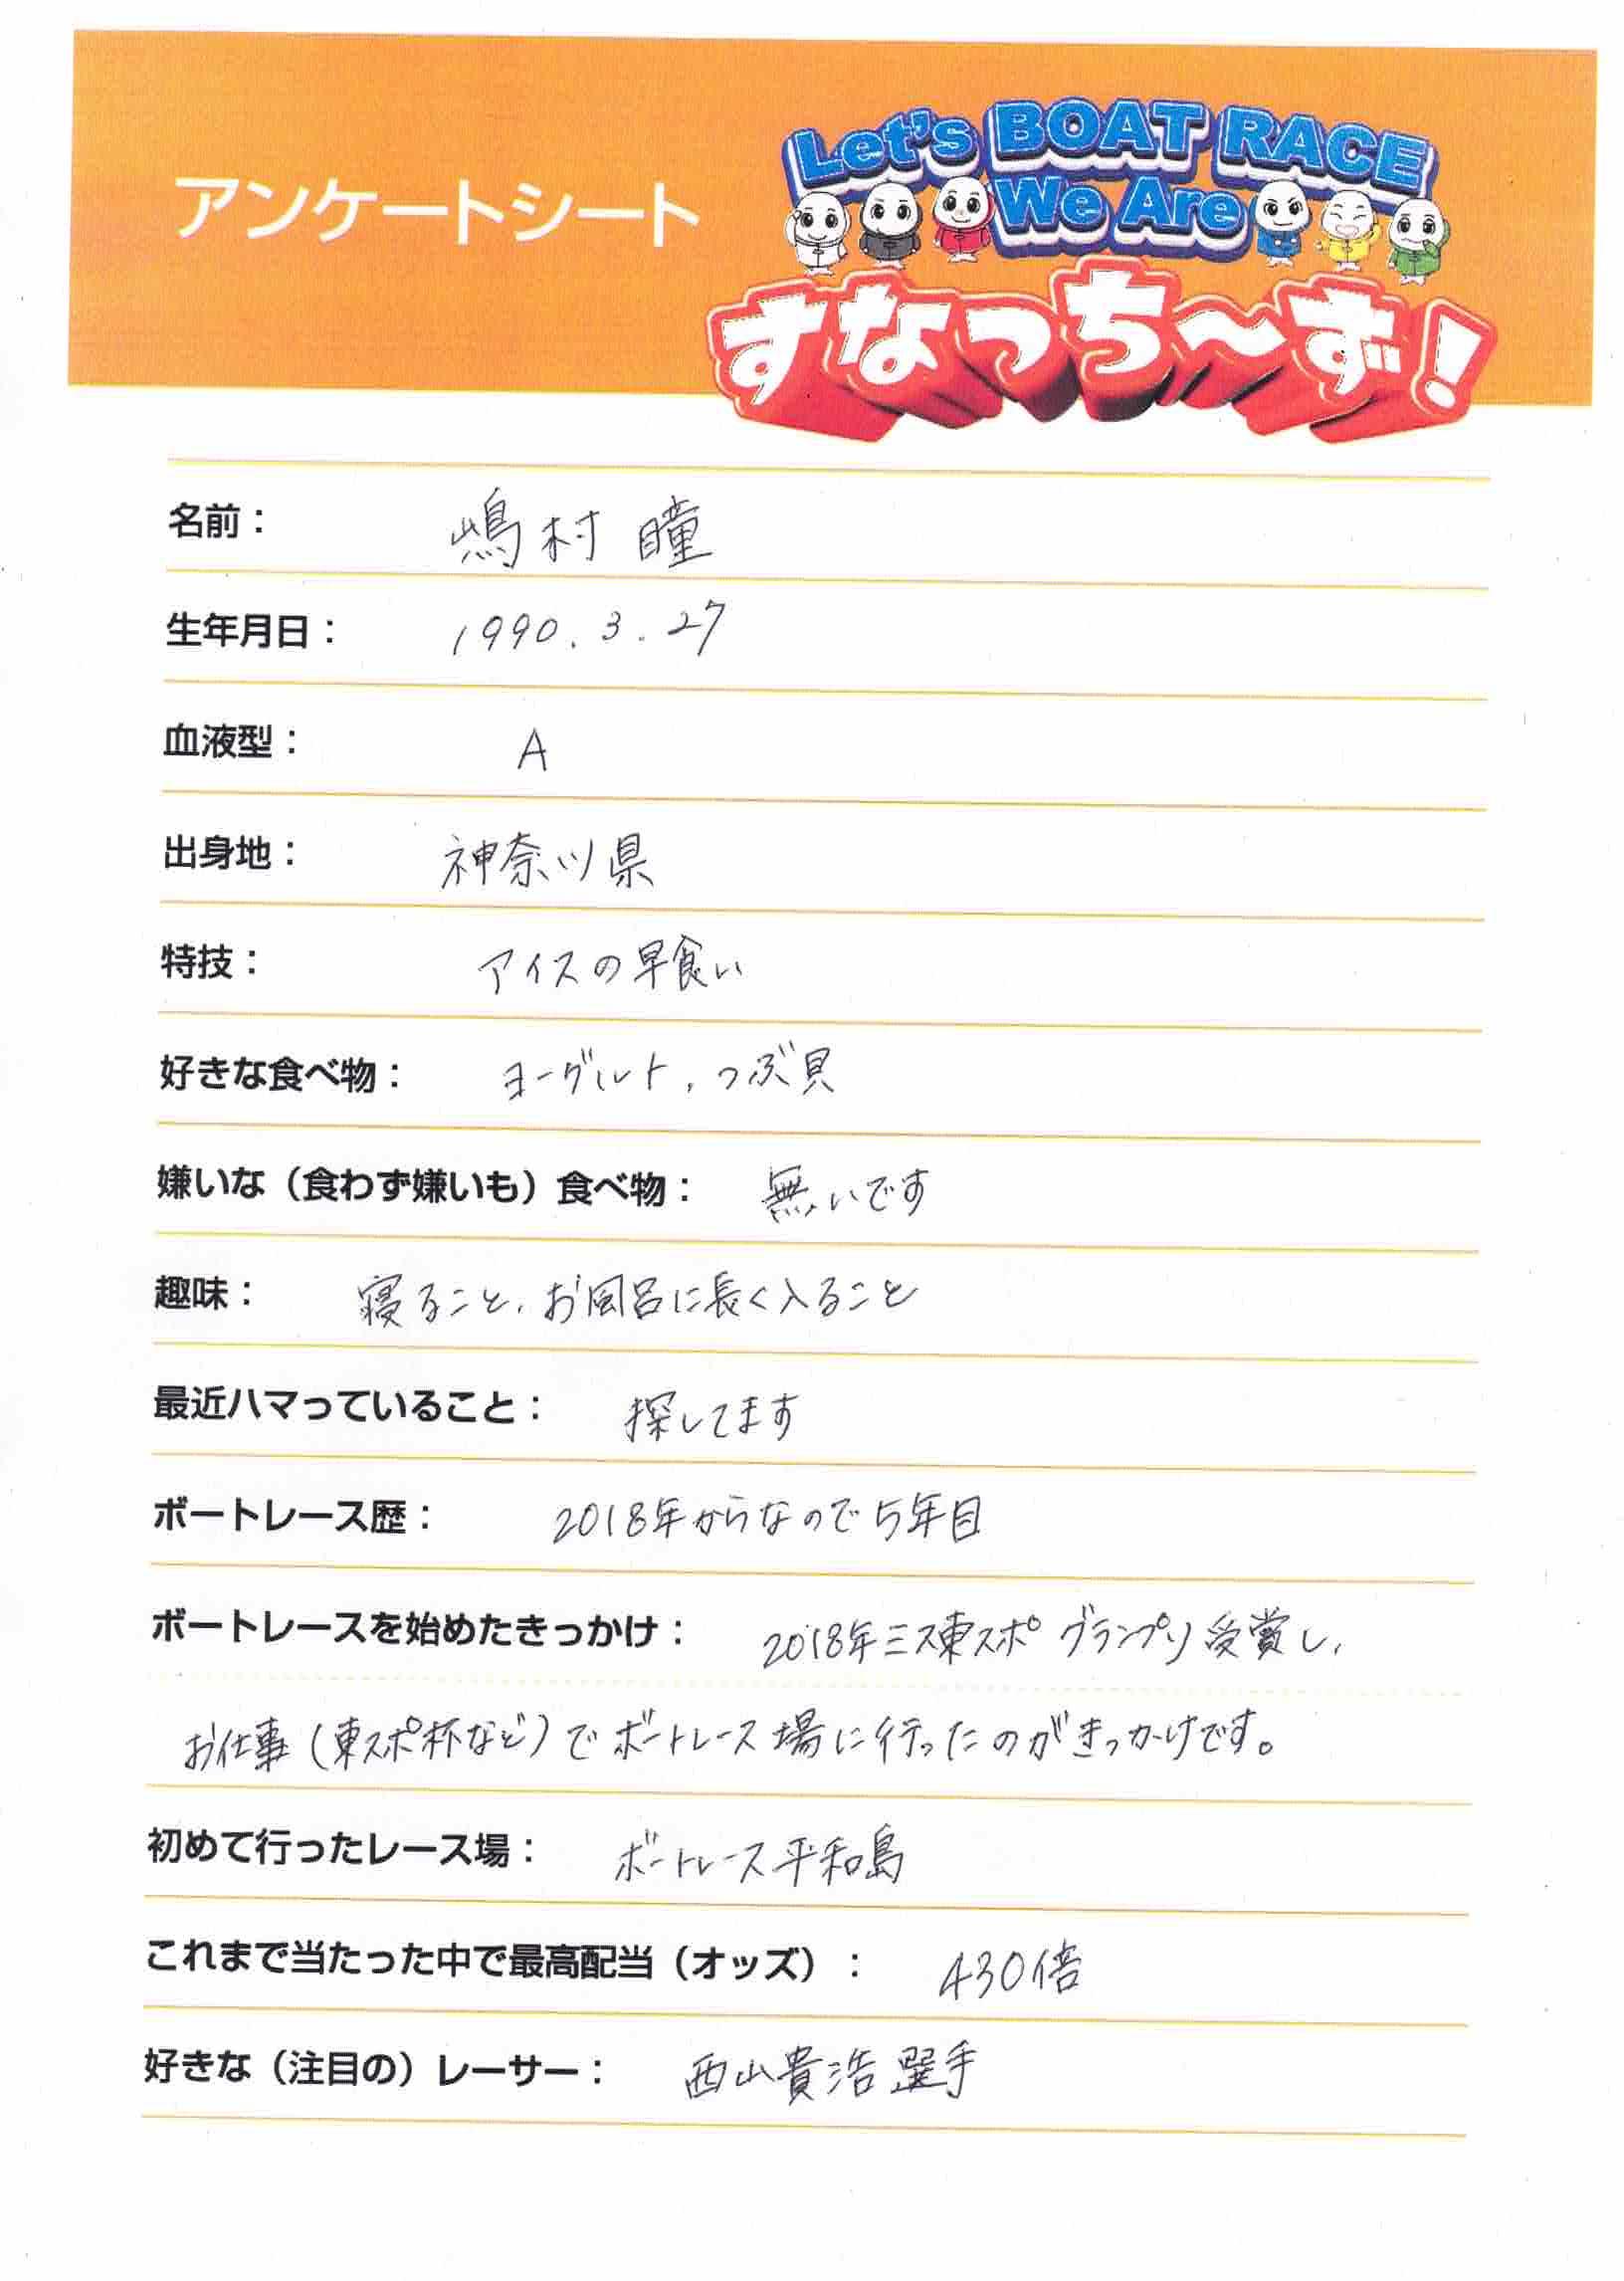 アンケートシート
Let's BOAT RACE
We Are
すなっち〜ず!
名前： 嶋村 瞳
生年月日： 1990.3.27
血液型： A
出身地： 神奈川県
特技： アイスの早食い
好きな食べ物： ヨーグルト、つぶ貝
嫌いな（食わず嫌いも）食べ物： 無いです
趣味： 寝ること、お風呂に長く入ること
最近ハマっていること： 探してます
ボートレース歴： 2018年からなので5年目
ボートレースを始めたきっかけ： 2018年ミス東スポグランプリ受賞し、
お仕事（東スポ杯など）でボートレース場に行ったのがきっかけです。
初めて行ったレース場： ボートレース平和島
これまで当たった中で最高配当（オッズ）： 430倍
好きな（注目の）レーサー： 西山貴浩選手